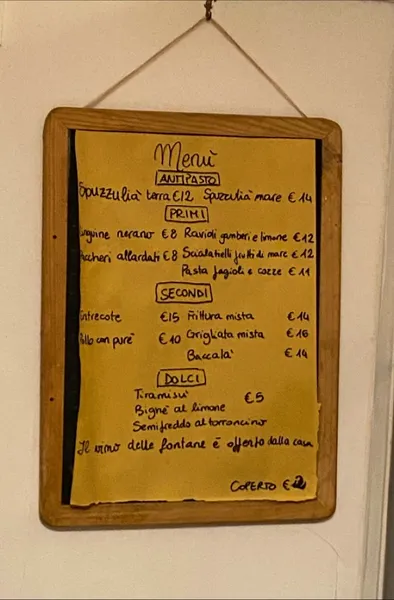 Menù
ANTIPASTO
Spuzzulià terra €12 Spuzzulià mare €14
PRIMI
Linguine nerano €8 Ravioli gamberi e limone €12
Paccheri allardati €8 Scialatielli frutti di mare €12
Pasta fagioli e cozze €11
SECONDI
Entrecote €15 Frittura mista €14
Pollo con purè €10 Grigliata mista €16
Baccalà €14
DOLCI
Tiramisù €5
Bignè al limone
Semifreddo al torroncino
Il vino delle fontane è offerto dalla casa
COPERTO €2